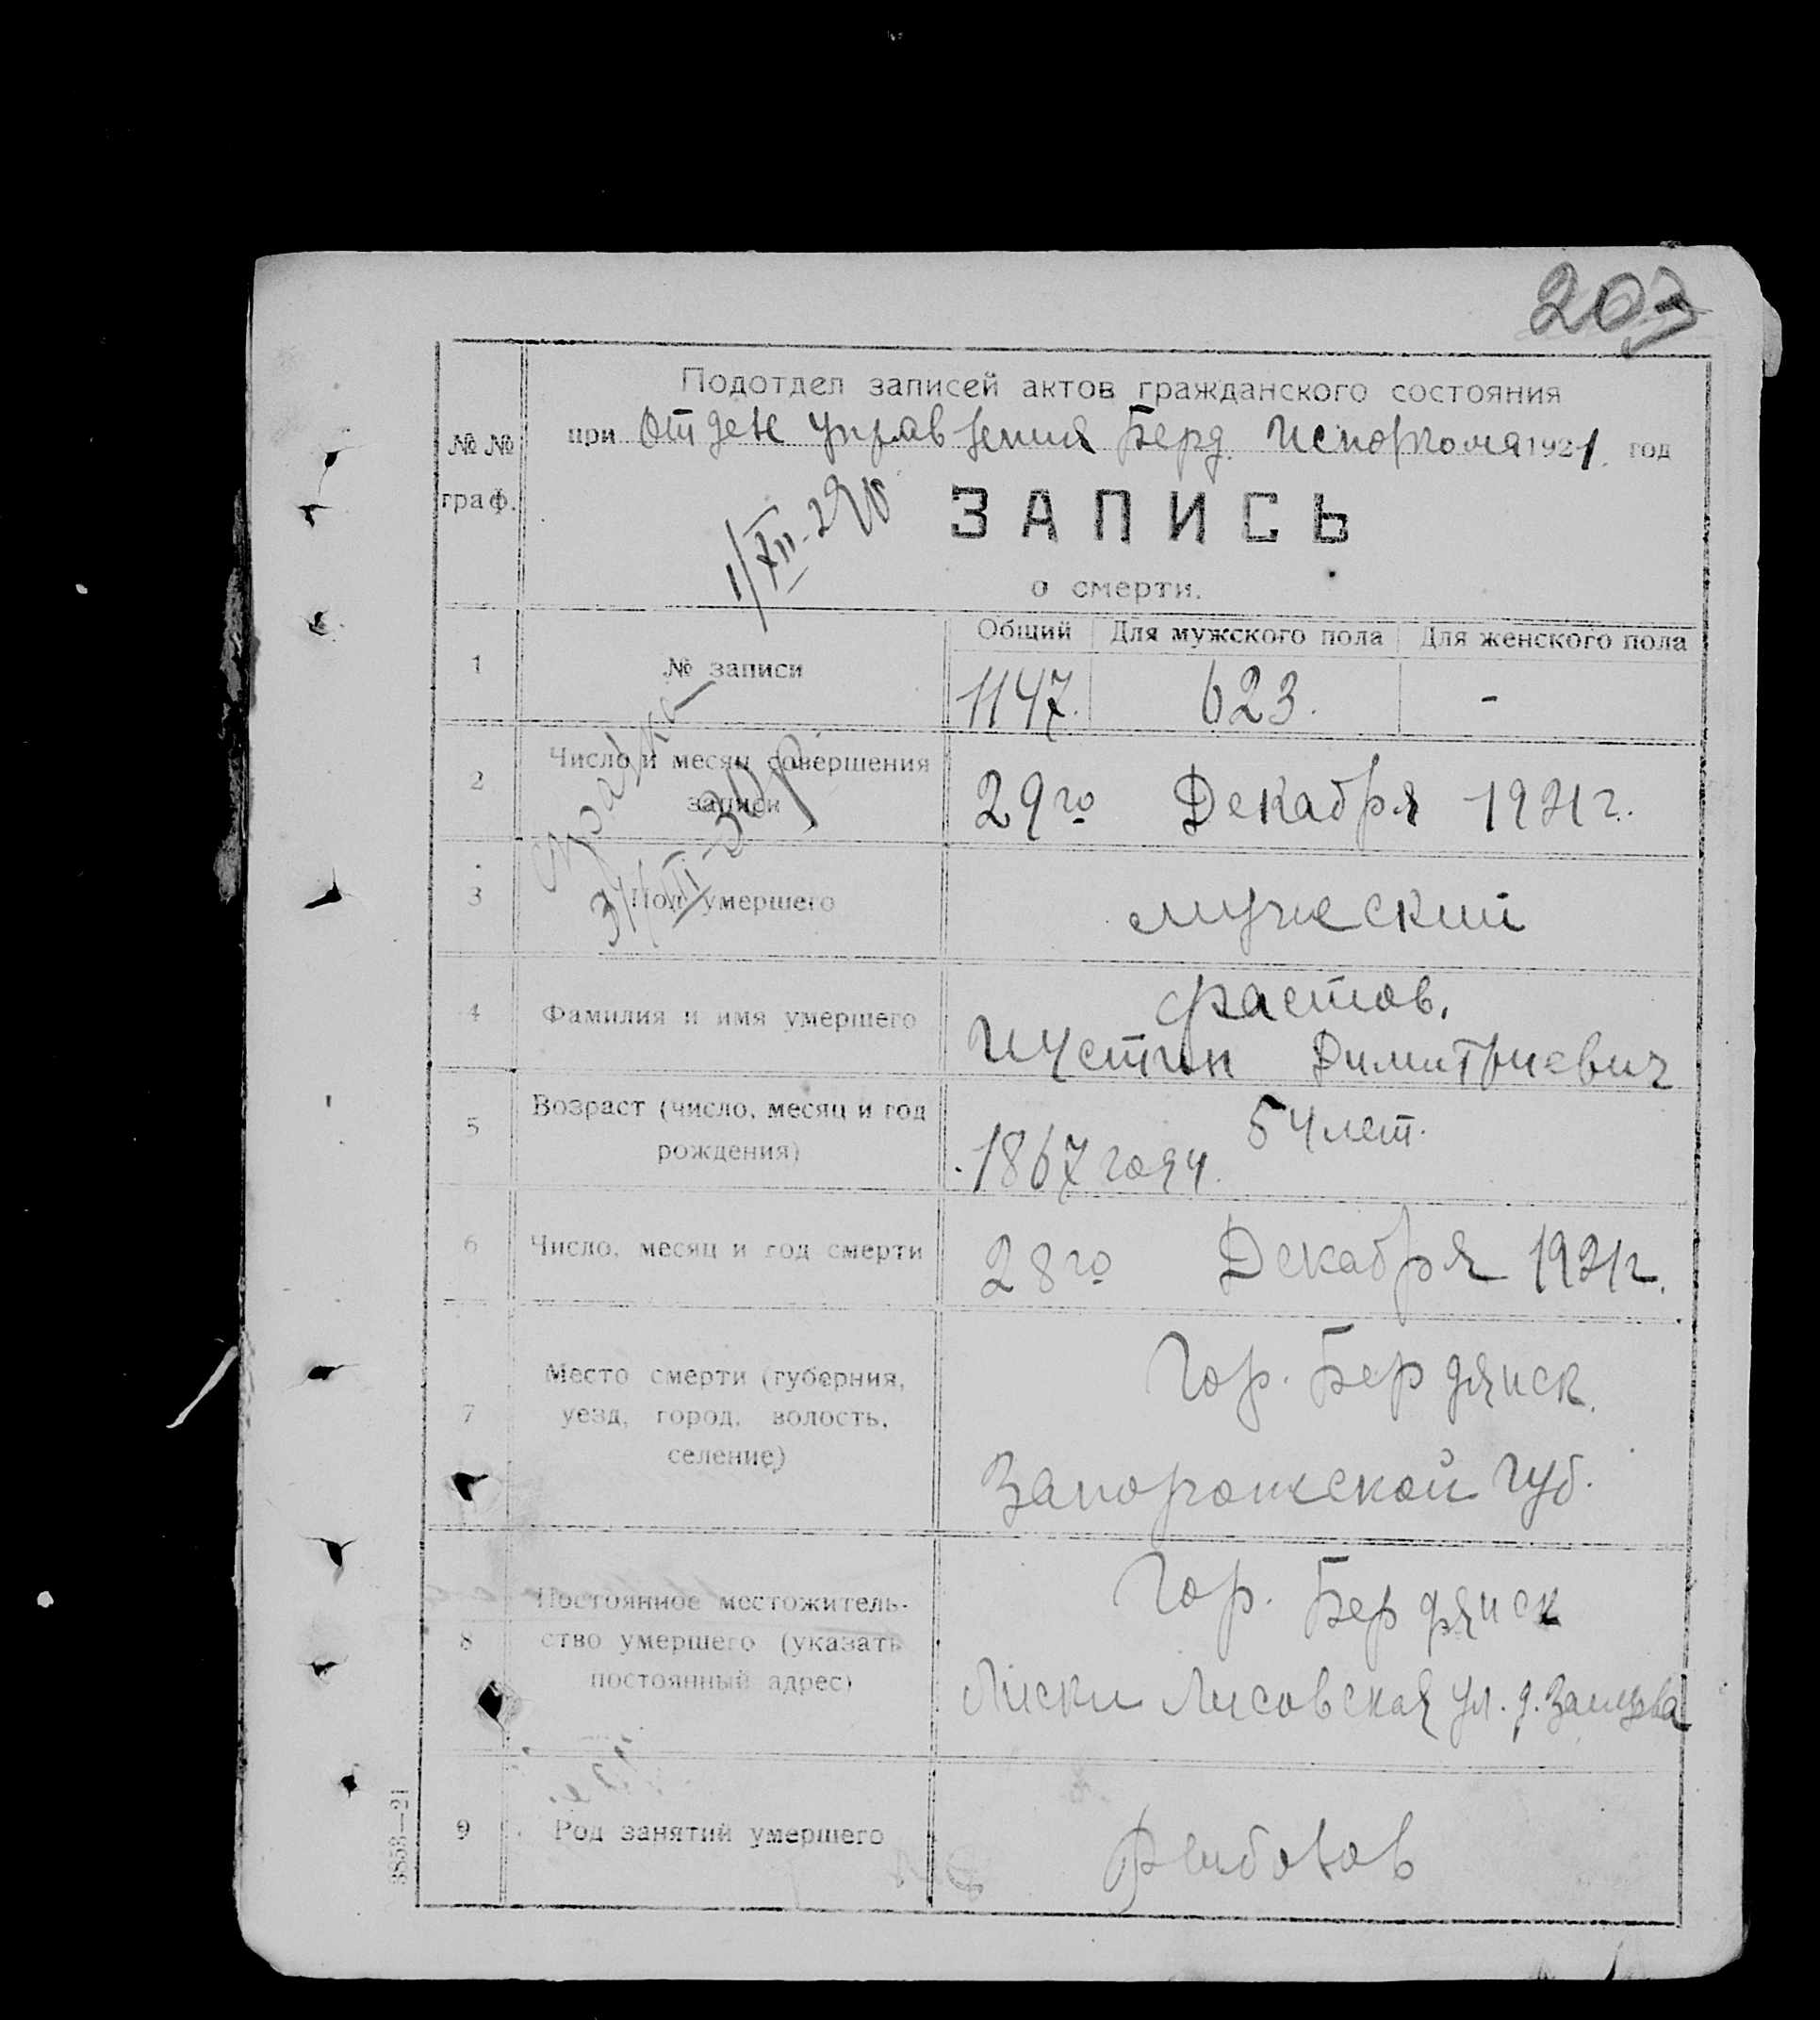 203
Подотдел записей актов гражданского состояния
при Отделе Управления Берд. Исполкома 1921. год
№ № граф.
1/XII-29
ЗАПИСЬ
о смерти.
Общий Для мужского пола Для женского пола
1 № записи 1147. 623. -
справка
31/XII-30
2 Число и месяц совершения записи
29го Декабря 1921 г.
3 Пол умершего мужеский
4 Фамилия и имя умершего
Фастов.
Иустин Димитриевич
5 Возраст (число, месяц и год рождения)
54 лет.
1867 году.
6 Число, месяц и год смерти 28го Декабря 1921 г.
7 Место смерти (губерния,
уезд, город, волость,
селение)
Гор. Бердянск.
Запорожской губ.
8 Постоянное местожитель-
ство умершего (указать
постоянный адрес)
Гор. Бердянск
Лиски Лисовская ул. д.
9 Род занятий умершего
3853—21